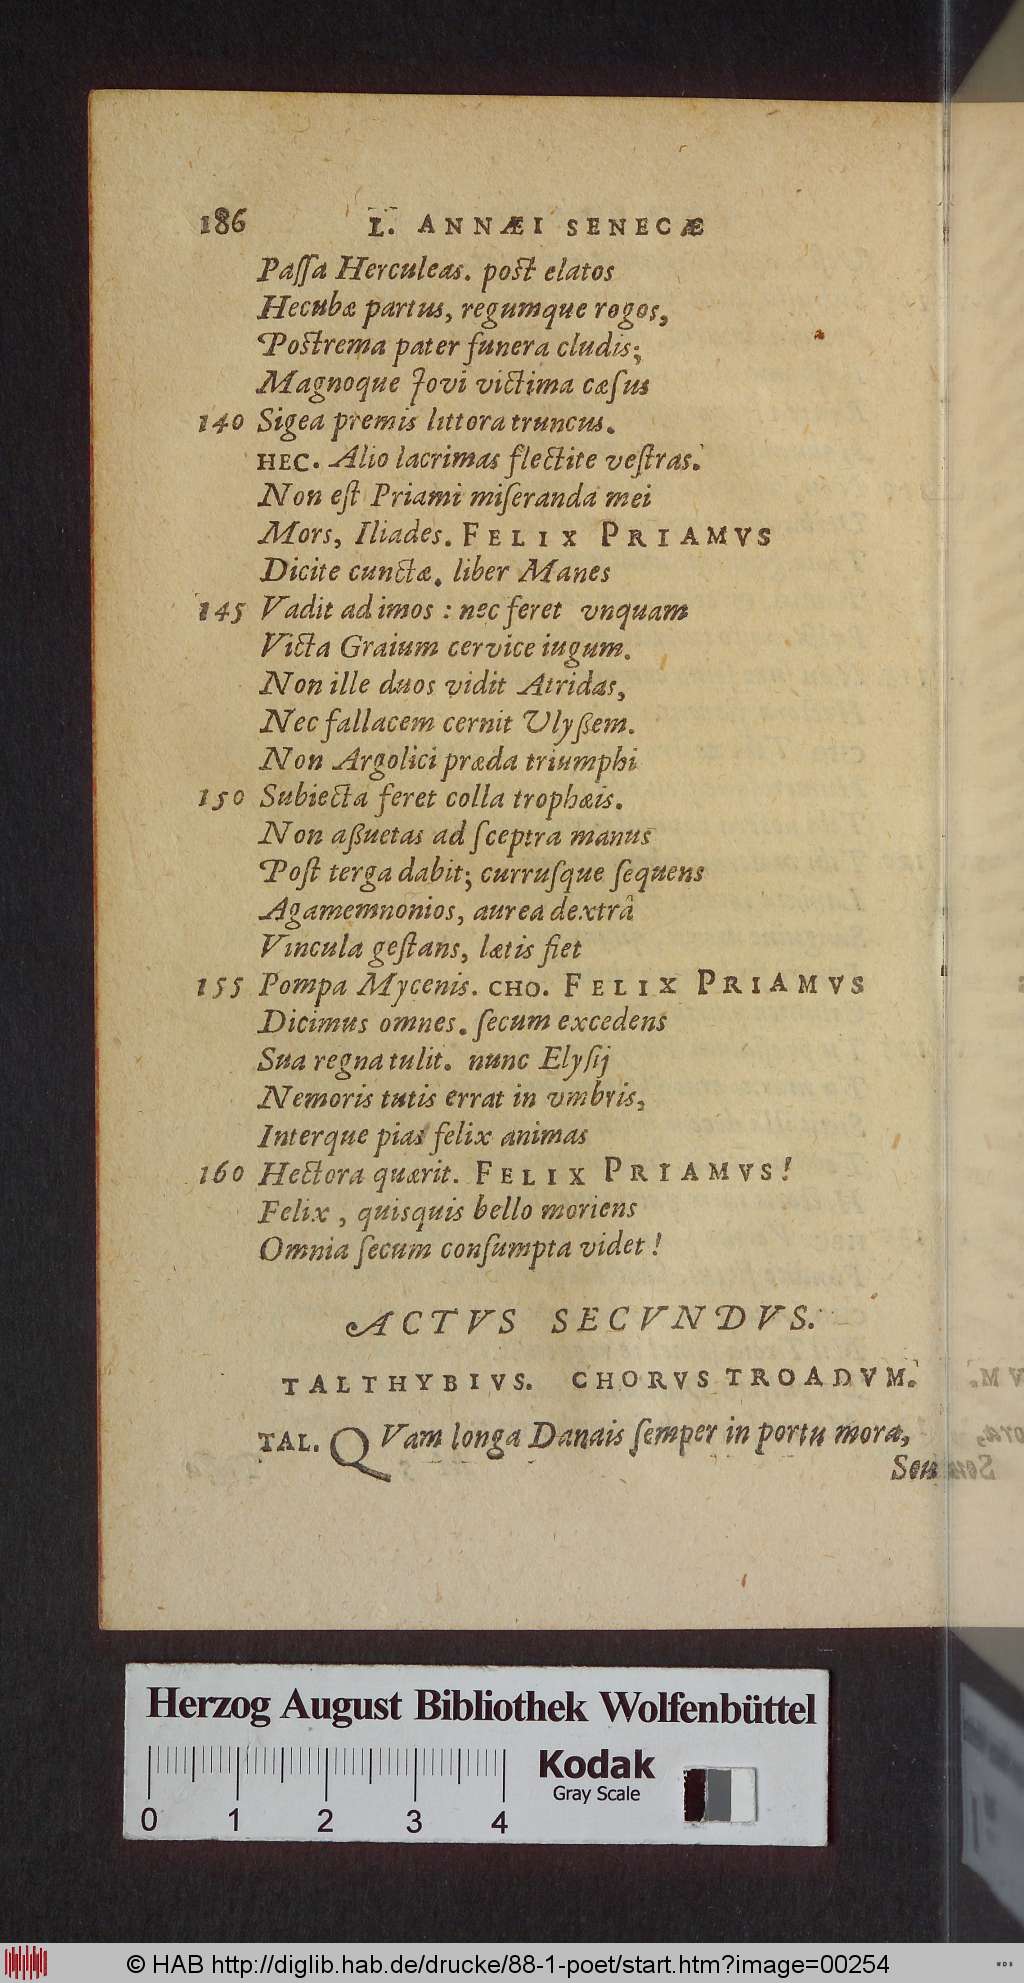 186 L. ANNÆI SENECÆ
Paſſa Herculeas. post elatos
Hecubæ partus, regumque rogos,
Postrema pater funera cludis;
Magnoque Jovi victima cæſus
140 Sigea premis littora truncus.
HEC. Alio lacrimas flectite veſtras.
Non eſt Priami miſeranda mei
Mors, Iliades. FELIX PRIAMVS
Dicite cunctæ. liber Manes
145 Vadit ad imos : nec feret vnquam
Victa Graium cervice iugum.
Non ille duos vidit Atridas,
Nec fallacem cernit Vlyßem.
Non Argolici præda triumphi
150 Subiecta feret colla trophæis.
Non aßuetas ad ſceptra manus
Poſt terga dabit; currusque ſequens
Agamemnonios, aurea dextrâ
Vincula geſtans, lætis fiet
155 Pompa Mycenis. CHO. FELIX PRIAMVS
Dicimus omnes. ſecum excedens
Sua regna tulit. nunc Elyſij
Nemoris tutis errat in vmbris,
Interque pias felix animas
160 Hectora quærit. FELIX PRIAMVS!
Felix, quisquis bello moriens
Omnia ſecum conſumpta videt!
ACTVS SECVNDVS.
TALTHYBIVS. CHORVS TROADVM.
TAL. QVam longa Danais ſemper in portu mora,
Seu
Herzog August Bibliothek Wolfenbüttel
Kodak
Gray Scale
0 1 2 3 4
© HAB http://diglib.hab.de/drucke/88-1-poet/start.htm?image=00254